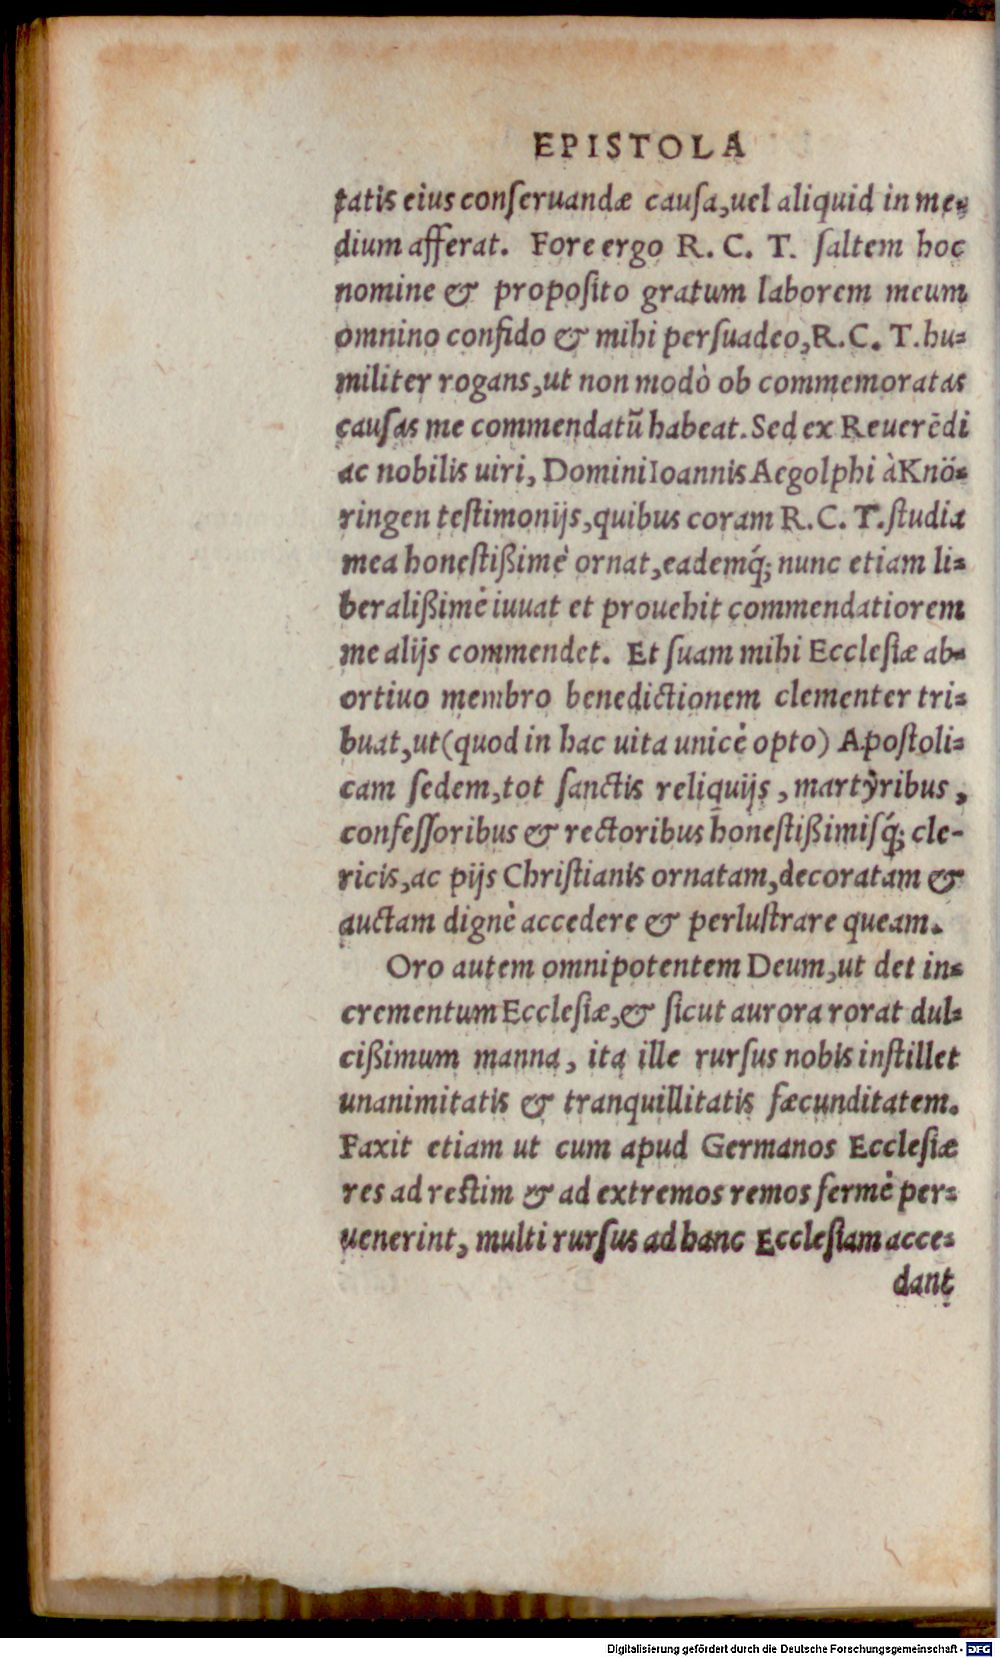 EPISTOLA
tatis eius conſeruandæ cauſa, uel aliquid in me-
dium afferat. Fore ergo R. C. T. ſaltem hoc
nomine & propoſito gratum laborem meum
omnino confido & mihi perſuadeo, R. C. T. hu-
militer rogans, ut non modò ob commemoratas
cauſas me commendatũ habeat. Sed ex Reuerēdi
ac nobilis uiri, Domini Ioannis Aegolphi à Knö-
ringen teſtimonijs, quibus coram R. C. T. ſtudia
mea honeſtißimè ornat, eademq́; nunc etiam li-
beralißimè iuuat et prouehit commendatiorem
me alijs commendet. Et ſuam mihi Eccleſiæ ab-
ortiuo membro benedictionem clementer tri-
buat, ut (quod in hac uita unicè opto) Apoſtoli-
cam ſedem, tot ſanctis reliquijs, martÿribus,
confeſſoribus & rectoribus honeſtißimiſq́; cle-
ricis, ac pijs Chriſtianis ornatam, decoratam &
auctam dignè accedere & perluſtrare queam.
Oro autem omnipotentem Deum, ut det in-
crementum Eccleſiæ, & ſicut aurora rorat dul-
cißimum manna, ita ille rurſus nobis inſtillet
unanimitatis & tranquillitatis fæcunditatem.
Faxit etiam ut cum apud Germanos Eccleſiæ
res ad reſtim & ad extremos remos fermè per-
uenerint, multi rurſus ad hanc Eccleſiam acce-
dant
Digitalisierung gefördert durch die Deutsche Forschungsgemeinschaft - DFG